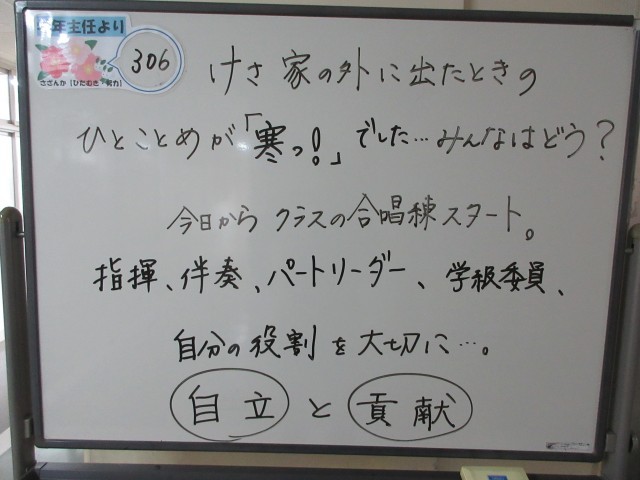 年主任より
306
さざんか【ひたむき・努力】
けさ 家の外に出たときの
ひとことめが「寒っ!」でした…みんなはどう?
今日から クラスの合唱練スタート。
指揮、伴奏、パートリーダー、学級委員、
自分の役割を大切に…。
自立と貢献